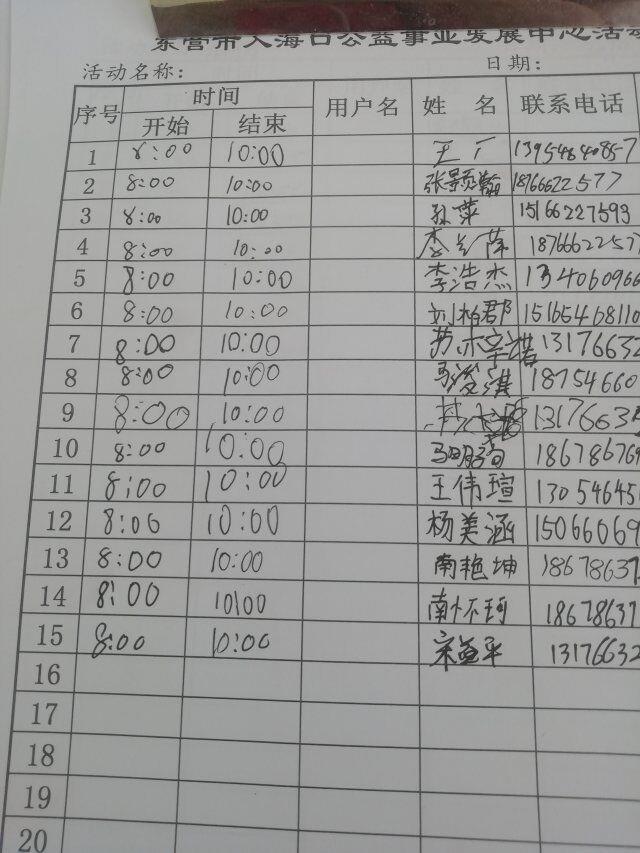 东营市大海日公益事业发展中心活动
活动名称： 日期：
序号 时间 用户名 姓 名 联系电话
开始 结束
1 8:00 10:00 王 13954840857
2 8:00 10:00 张景瀚 18766622577
3 8:00 10:00 孙萍 15166227593
4 8:00 10:00 李兰萍 1876662257
5 8:00 10:00 李浩杰 134060966
6 8:00 10:00 刘柏郡 15165468110
7 8:00 10:00 苏 诺 13176632
8 8:00 10:00 马浚淇 18754660
9 8:00 10:00 1317663
10 8:00 10:00 马明 186786769
11 8:00 10:00 王伟瑄 13054645
12 8:00 10:00 杨美涵 15066069
13 8:00 10:00 南艳坤 18678637
14 8:00 10:00 南怀珂 18678637
15 8:00 10:00 宋益平 13176632
16
17
18
19
20